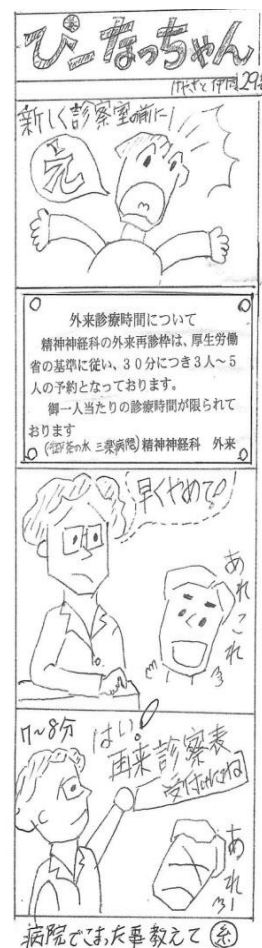 ぴーなっちゃん
けやきと伊岡29
新しく診察室の前に!
元
外来診療時間について
精神神経科の外来再診枠は、厚生労働
省の基準に従い、30分につき3人〜5
人の予約となっております。
御一人当たりの診療時間が限られて
おります
(御茶の水 三楽病院)精神神経科 外来
早くやめて!
あれこれ
7〜8分
はい!
再来診察表
受付にね
あれ
病院でこまった事教えて 糸